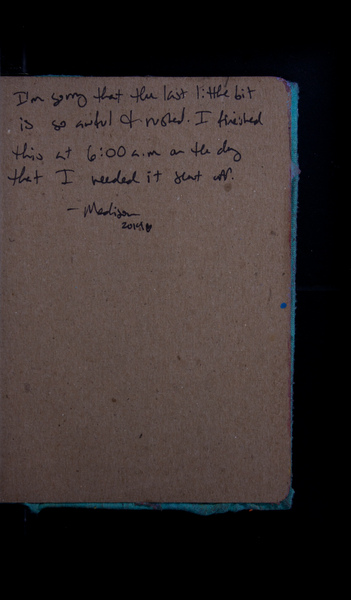 I'm sorry that the last little bit
is so awful & rushed. I finished
this at 6:00 a.m on the day
that I needed it sent off.
— Madison